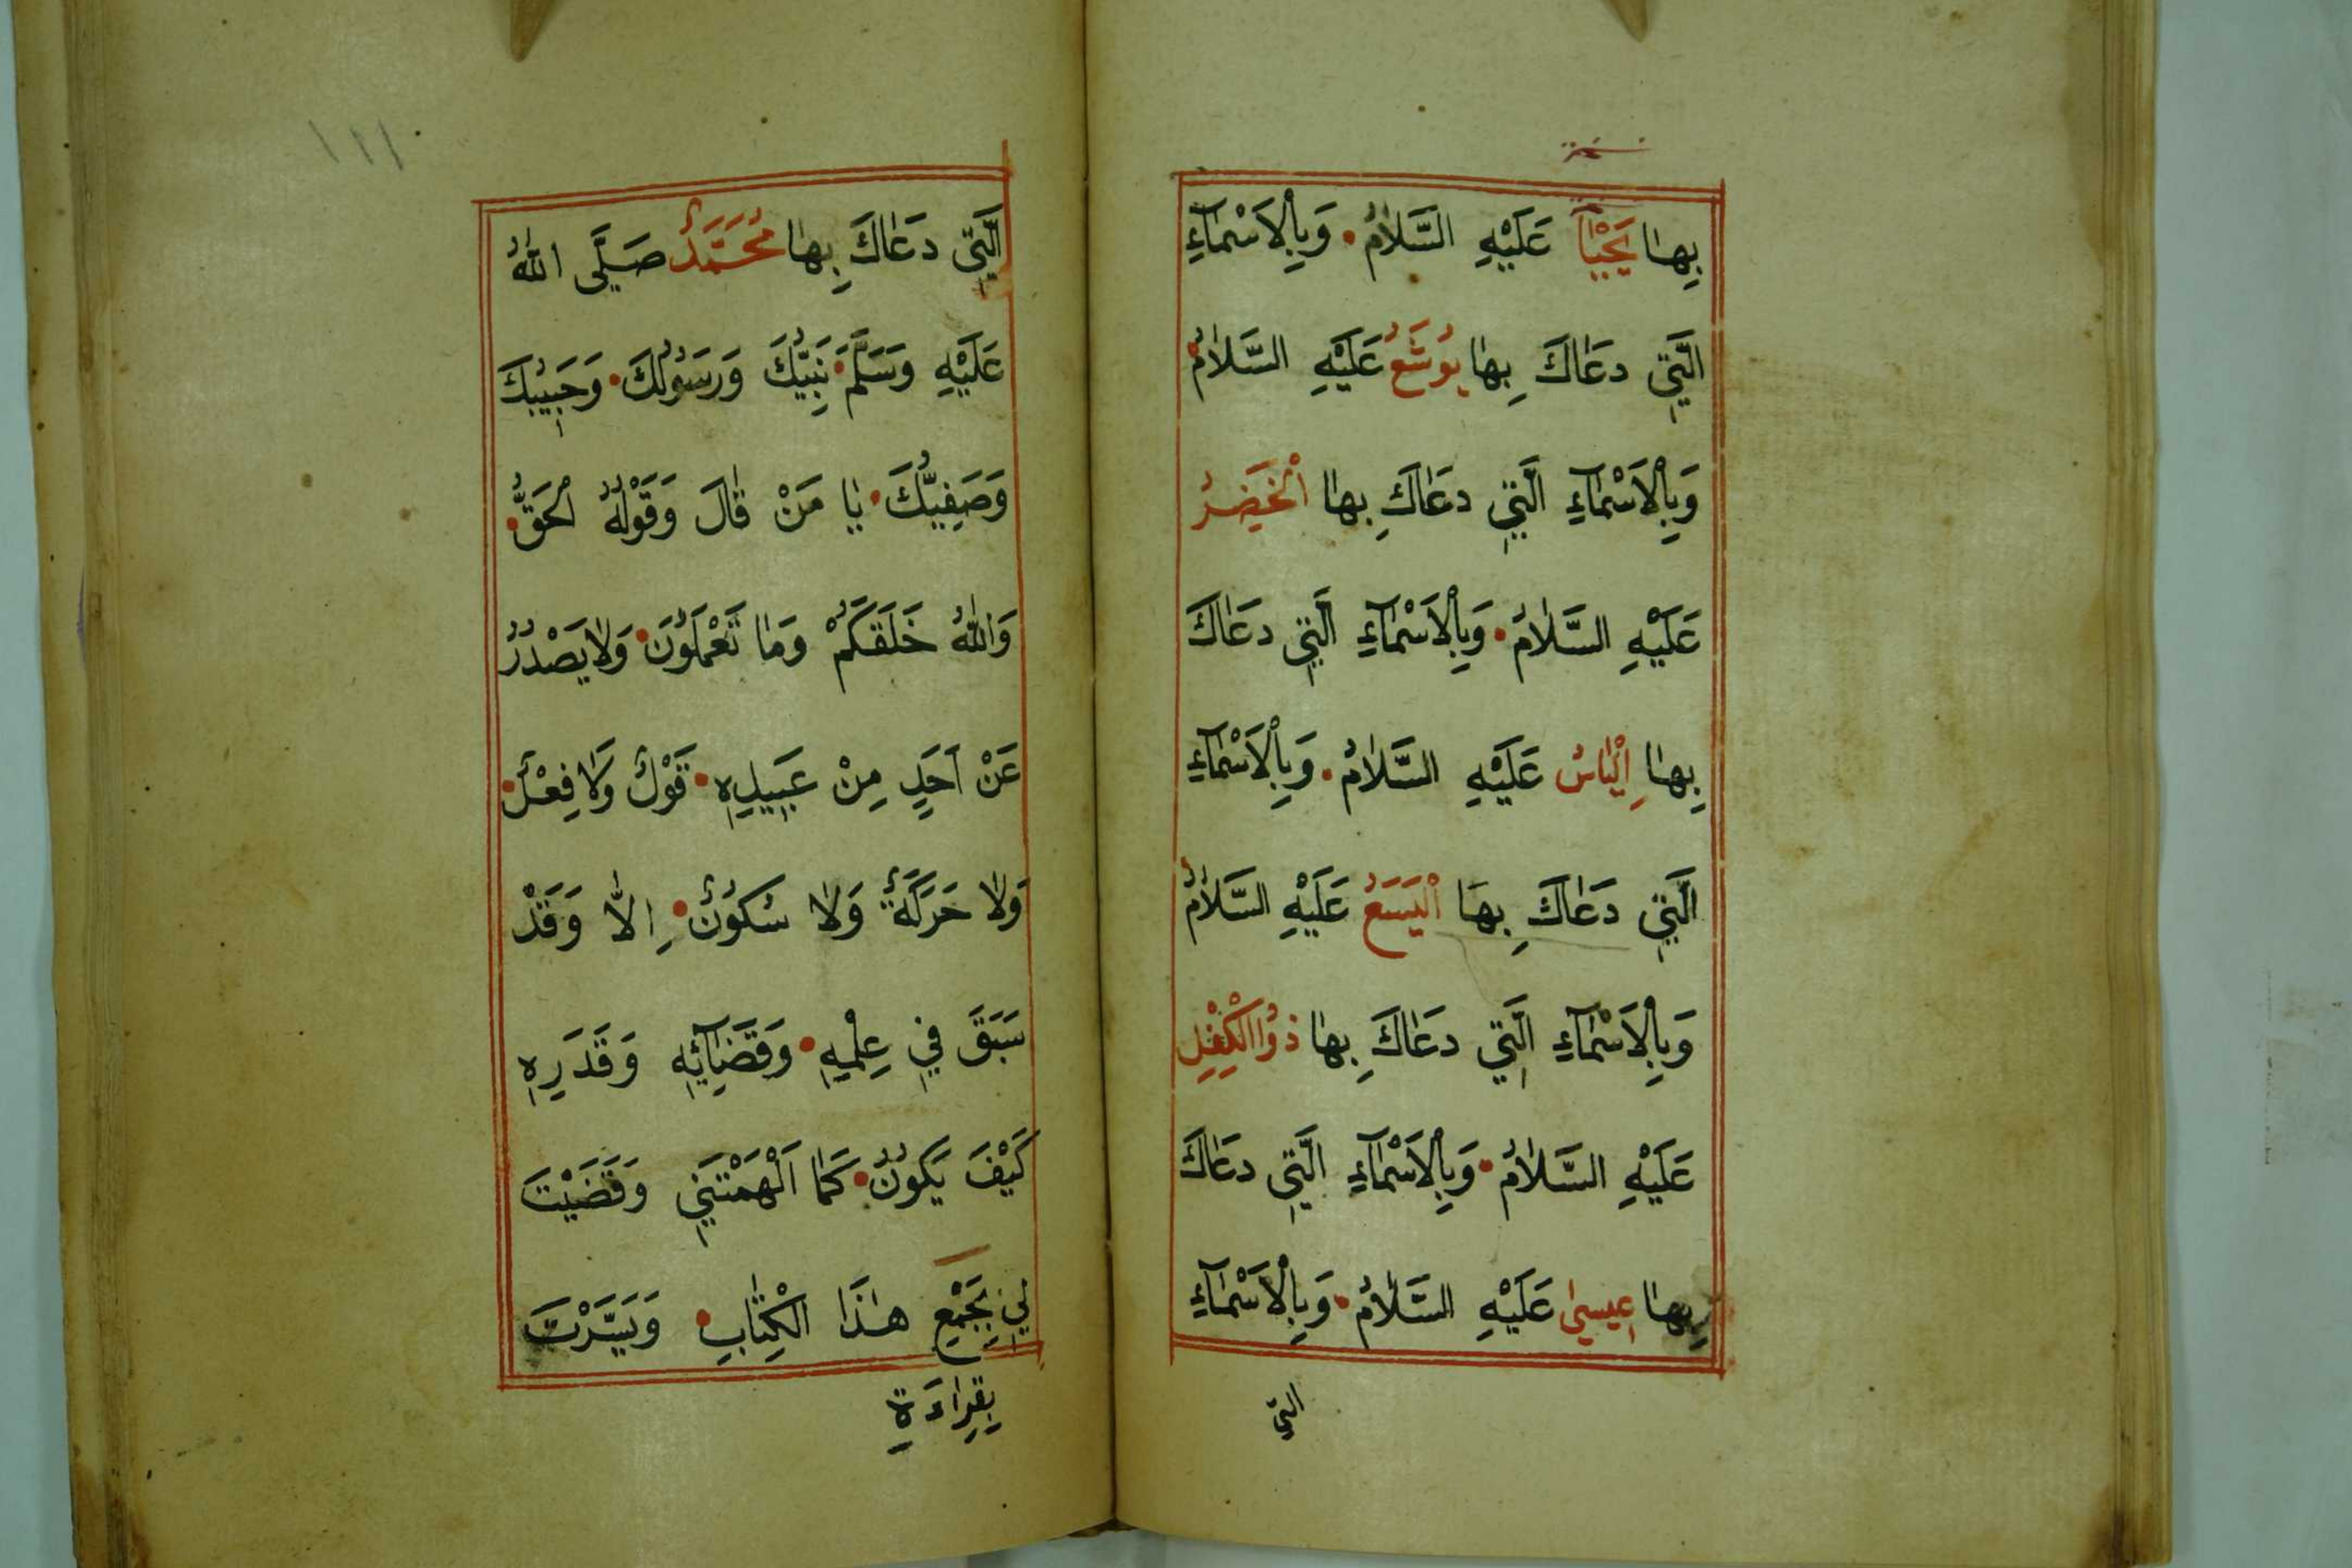 بِهَا يَحْيٰى عَلَيْهِ السَّلَامُ • وَبِالْاَسْمَآءِ
الَّتِي دَعَاكَ بِهَا يُوشَعُ عَلَيْهِ السَّلَامُ •
وَبِالْاَسْمَآءِ الَّتِي دَعَاكَ بِهَا الْخَضِرُ
عَلَيْهِ السَّلَامُ • وَبِالْاَسْمَآءِ الَّتِي دَعَاكَ
بِهَا اِلْيَاسُ عَلَيْهِ السَّلَامُ • وَبِالْاَسْمَآءِ
الَّتِي دَعَاكَ بِهَا الْيَسَعُ عَلَيْهِ السَّلَامُ
وَبِالْاَسْمَآءِ الَّتِي دَعَاكَ بِهَا ذُوالْكِفْلِ
عَلَيْهِ السَّلَامُ • وَبِالْاَسْمَآءِ الَّتِي دَعَاكَ
بِهَا عِيسٰى عَلَيْهِ السَّلَامُ • وَبِالْاَسْمَآءِ
التي
الَّتِي دَعَاكَ بِهَا مُحَمَّدٌ صَلَّى اللهُ
عَلَيْهِ وَسَلَّمَ • نَبِيُّكَ وَرَسُولُكَ • وَحَبِيبُكَ
وَصَفِيُّكَ • يَا مَنْ قَالَ وَقَوْلُهُ الْحَقُّ •
وَاللهُ خَلَقَكُمْ وَمَا تَعْمَلُونَ • وَلَا يَصْدُرُ
عَنْ اَحَدٍ مِنْ عَبِيدِهِ • قَوْلٌ وَلَا فِعْلٌ •
وَلَا حَرَكَةٌ وَلَا سُكُونٌ • اِلَّا وَقَدْ
سَبَقَ فِي عِلْمِهِ • وَقَضَآئِهِ وَقَدَرِهِ
كَيْفَ يَكُونُ • كَمَا اَلْهَمْتَنِي وَقَضَيْتَ
لِي بِجَمْعِ هٰذَا الْكِتَابِ • وَيَسَّرْتَ
بِقِرَاءَةِ